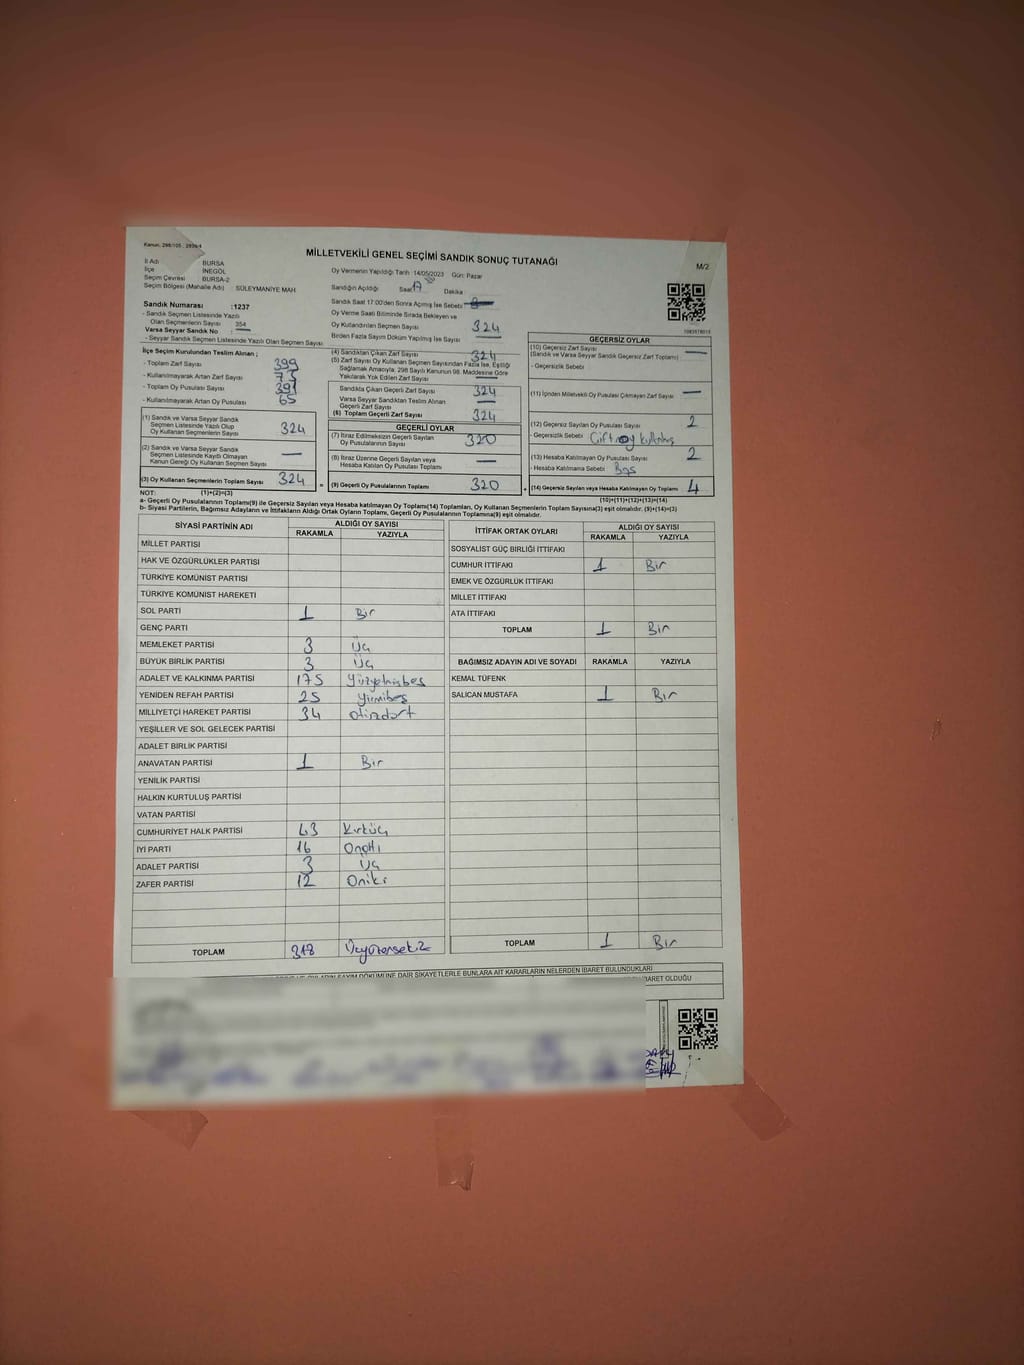 Kanun: 298/105, 2839/4
MİLLETVEKİLİ GENEL SEÇİMİ SANDIK SONUÇ TUTANAĞI
M/2
İl Adı : BURSA
İlçe : İNEGÖL
Seçim Çevresi : BURSA-2
Seçim Bölgesi (Mahalle Adı) : SÜLEYMANİYE MAH.
Oy Vermenin Yapıldığı Tarih :14/05/2023 Gün: Pazar
Sandığın Açıldığı Saat 17 Dakika :
Sandık Saat 17:00'den Sonra Açılmış İse Sebebi
Oy Verme Saati Bitiminde Sırada Bekleyen ve
Oy Kullandırılan Seçmen Sayısı 324
Birden Fazla Sayım Döküm Yapılmış İse Sayısı —
Sandık Numarası :1237
- Sandık Seçmen Listesinde Yazılı
Olan Seçmenlerin Sayısı : 354
Varsa Seyyar Sandık No : —
- Seyyar Sandık Seçmen Listesinde Yazılı Olan Seçmen Sayısı:
İlçe Seçim Kurulundan Teslim Alınan ;
- Toplam Zarf Sayısı : 399
- Kullanılmayarak Artan Zarf Sayısı : 75
- Toplam Oy Pusulası Sayısı : 391
- Kullanılmayarak Artan Oy Pusulası : 65
(1) Sandık ve Varsa Seyyar Sandık
Seçmen Listesinde Yazılı Olup
Oy Kullanan Seçmenlerin Sayısı 324
(2) Sandık ve Varsa Seyyar Sandık
Seçmen Listesinde Kayıtlı Olmayan
Kanun Gereği Oy Kullanan Seçmen Sayısı —
(3) Oy Kullanan Seçmenlerin Toplam Sayısı 324
(4) Sandıktan Çıkan Zarf Sayısı 324
(5) Zarf Sayısı Oy Kullanan Seçmen Sayısından Fazla İse, Eşitliği
Sağlamak Amacıyla, 298 Sayılı Kanunun 98. Maddesine Göre
Yakılarak Yok Edilen Zarf Sayısı —
Sandıkta Çıkan Geçerli Zarf Sayısı 324
Varsa Seyyar Sandıktan Teslim Alınan
Geçerli Zarf Sayısı —
(6) Toplam Geçerli Zarf Sayısı 324
GEÇERLİ OYLAR
(7) İtiraz Edilmeksizin Geçerli Sayılan
Oy Pusulalarının Sayısı 320
(8) İtiraz Üzerine Geçerli Sayılan veya
Hesaba Katılan Oy Pusulası Toplamı —
= (9) Geçerli Oy Pusulalarının Toplamı 320
GEÇERSİZ OYLAR
(10) Geçersiz Zarf Sayısı
(Sandık ve Varsa Seyyar Sandık Geçersiz Zarf Toplamı) —
- Geçersizlik Sebebi
(11) İçinden Milletvekili Oy Pusulası Çıkmayan Zarf Sayısı —
(12) Geçersiz Sayılan Oy Pusulası Sayısı 2
- Geçersizlik Sebebi Çift oy kullanmış
(13) Hesaba Katılmayan Oy Pusulası Sayısı 2
- Hesaba Katılmama Sebebi Boş
+ (14) Geçersiz Sayılan veya Hesaba Katılmayan Oy Toplamı 4
NOT: (1)+(2)=(3) (10)+(11)+(12)+(13)=(14)
a- Geçerli Oy Pusulalarının Toplamı(9) ile Geçersiz Sayılan veya Hesaba katılmayan Oy Toplamı(14) Toplamları, Oy Kullanan Seçmenlerin Toplam Sayısına(3) eşit olmalıdır. (9)+(14)=(3)
b- Siyasi Partilerin, Bağımsız Adayların ve İttifakların Aldığı Ortak Oyların Toplamı, Geçerli Oy Pusulalarının Toplamına(9) eşit olmalıdır.
SİYASİ PARTİNİN ADI ALDIĞI OY SAYISI
RAKAMLA YAZIYLA
MİLLET PARTİSİ
HAK VE ÖZGÜRLÜKLER PARTİSİ
TÜRKİYE KOMÜNİST PARTİSİ
TÜRKİYE KOMÜNİST HAREKETİ
SOL PARTİ 1 Bir
GENÇ PARTİ
MEMLEKET PARTİSİ 3 Üç
BÜYÜK BİRLİK PARTİSİ 3 Üç
ADALET VE KALKINMA PARTİSİ 175 Yüzyetmişbeş
YENİDEN REFAH PARTİSİ 25 Yirmibeş
MİLLİYETÇİ HAREKET PARTİSİ 34 otuzdört
YEŞİLLER VE SOL GELECEK PARTİSİ
ADALET BİRLİK PARTİSİ
ANAVATAN PARTİSİ 1 Bir
YENİLİK PARTİSİ
HALKIN KURTULUŞ PARTİSİ
VATAN PARTİSİ
CUMHURİYET HALK PARTİSİ 43 Kırküç
İYİ PARTİ 16 Onaltı
ADALET PARTİSİ 3 Üç
ZAFER PARTİSİ 12 Oniki
TOPLAM 318 Üçyüzonsekiz
İTTİFAK ORTAK OYLARI ALDIĞI OY SAYISI
RAKAMLA YAZIYLA
SOSYALİST GÜÇ BİRLİĞİ İTTİFAKI
CUMHUR İTTİFAKI 1 Bir
EMEK VE ÖZGÜRLÜK İTTİFAKI
MİLLET İTTİFAKI
ATA İTTİFAKI
TOPLAM 1 Bir
BAĞIMSIZ ADAYIN ADI VE SOYADI RAKAMLA YAZIYLA
KEMAL TÜFENK
SALİCAN MUSTAFA 1 Bir
TOPLAM 1 Bir
SAYIM DÖKÜMÜNE DAİR ŞİKAYETLERLE BUNLARA AİT KARARLARIN NELERDEN İBARET BULUNDUKLARI
İBARET OLDUĞU